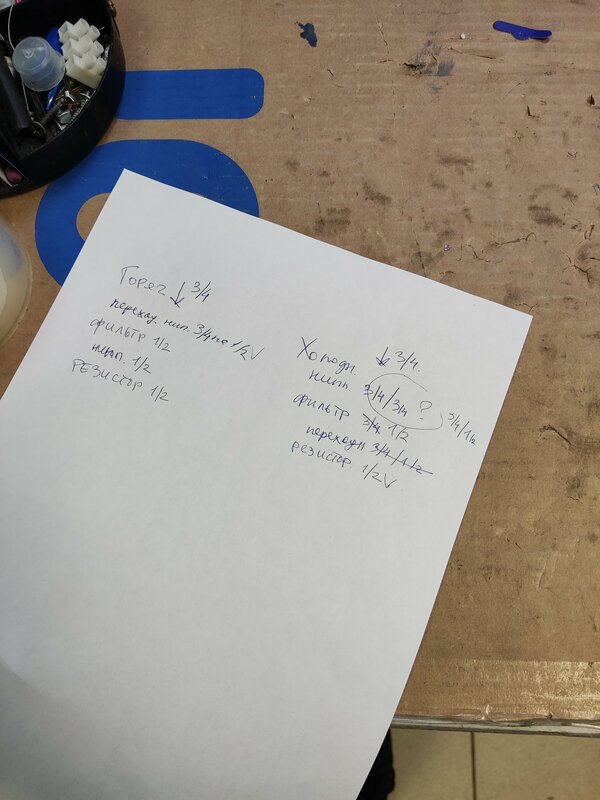 Горяч ↓ 3/4
переход. нип. 3/4 на 1/2 V
фильтр 1/2
нип. 1/2
РЕЗИСТОР 1/2
Холодн ↓ 3/4.
нипп. 3/4 / 3/4 ? 3/4 / 1/2
фильтр 3/4 1/2
переходн 3/4 / 1/2
резистор. 1/2 V